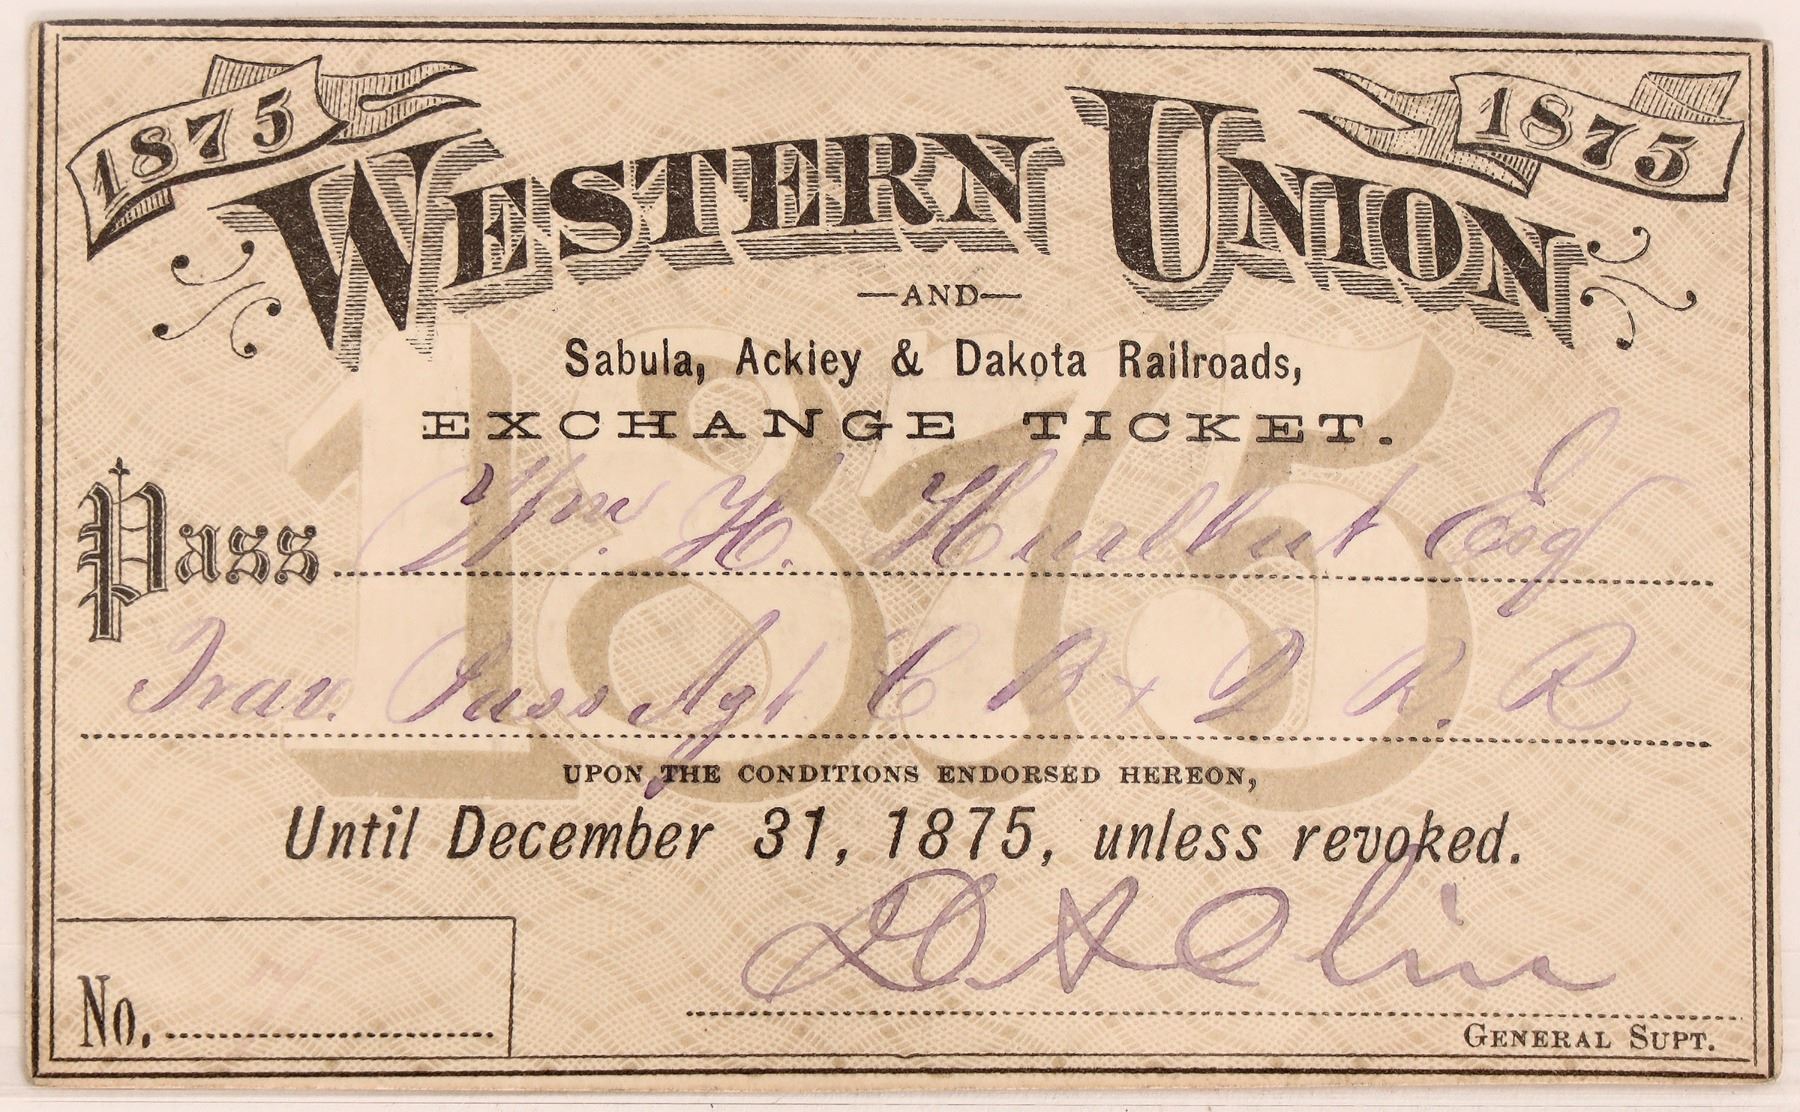 1875
1875
WESTERN UNION
—AND—
Sabula, Ackiey & Dakota Railroads,
EXCHANGE TICKET.
1875
Pass Wm. H. Hurlbut Esq
Trav. Pass Agt C B & Q R. R
UPON THE CONDITIONS ENDORSED HEREON,
Until December 31, 1875, unless revoked.
D A Olin
No.
GENERAL SUPT.